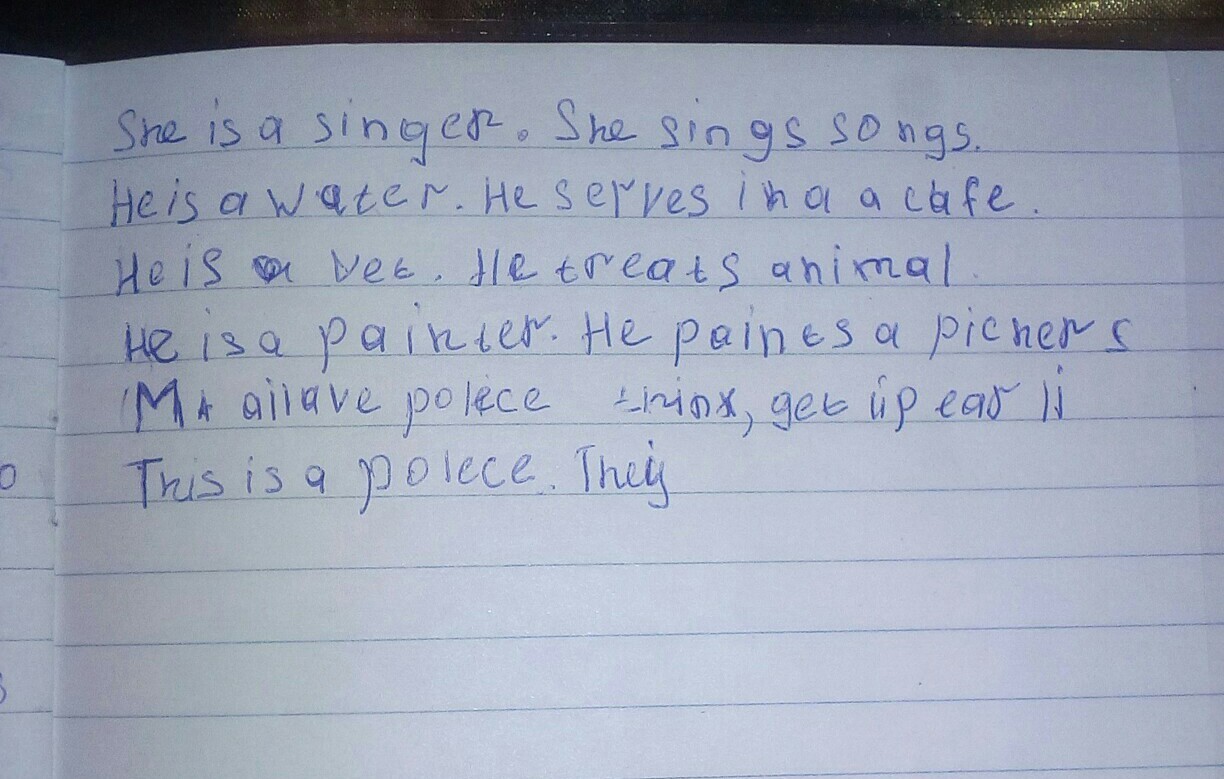 She is a singer. She sings songs.
He is a water. He serves in a a cafe.
He is a vet. He treats animal.
He is a painter. He paints a pichers
allave polece get up earli
This is a polece. They